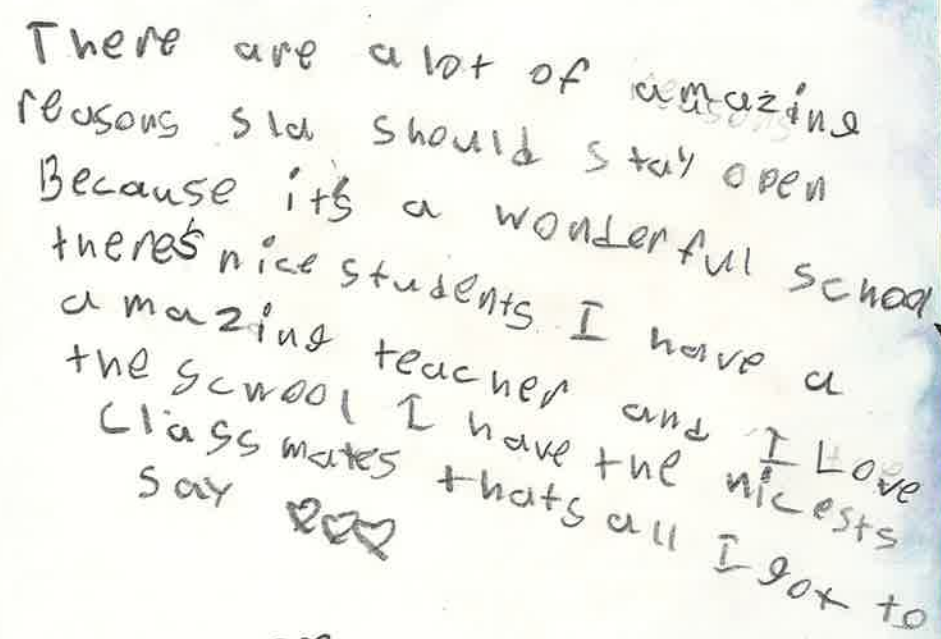 There are a lot of amazing
reasons sla should stay open
Because it's a wonderful school
there's nice students I have a
amazing teacher and I Love
the scwool I have the nicests
Classmates thats all I got to
say ♡♡♡